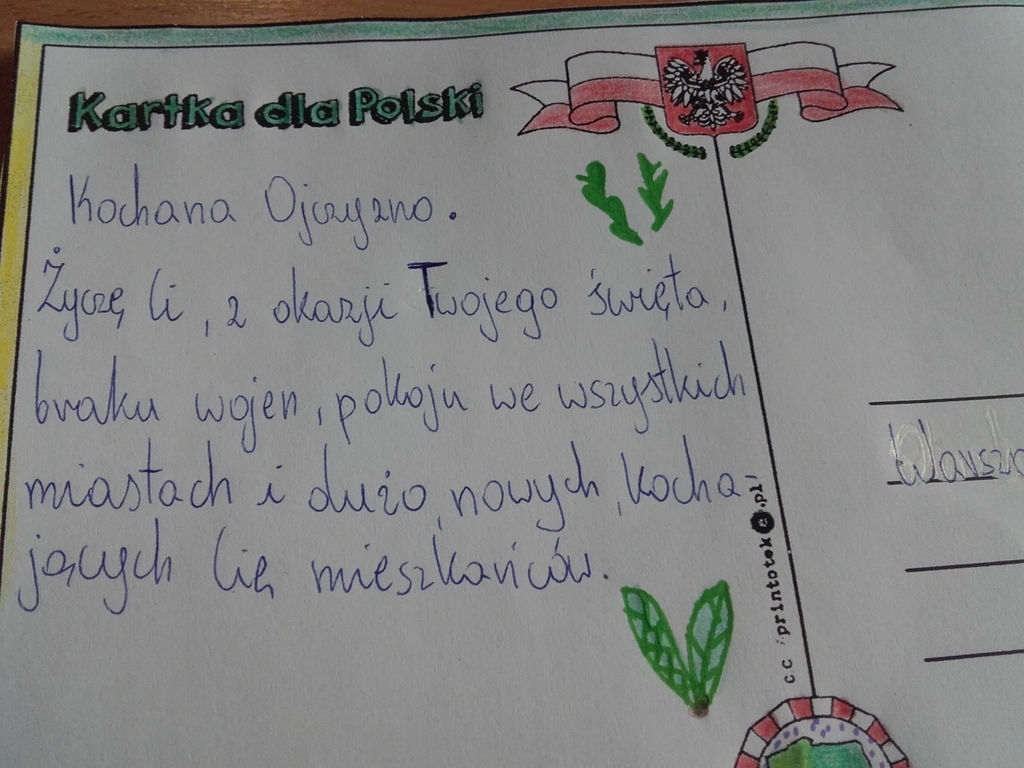 Kartka dla Polski
Kochana Ojczyzno.
Życzę Ci, z okazji Twojego święta,
braku wojen, pokoju we wszystkich
miastach i dużo, nowych, kocha-
jących Cię mieszkańców.
c.c. printoteka.pl